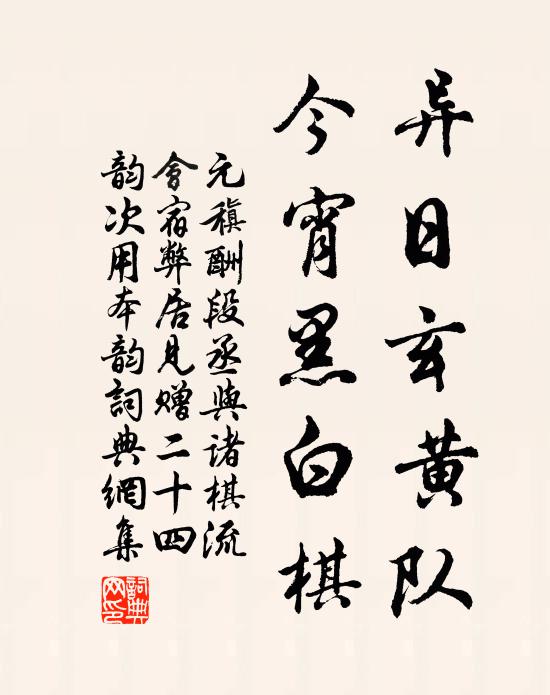 异日玄黄队
今宵黑白棋
元稹酬段丞與诸棋流
會宿弊居見赠二十四
韵次用本韵詞典網集
詞典网印